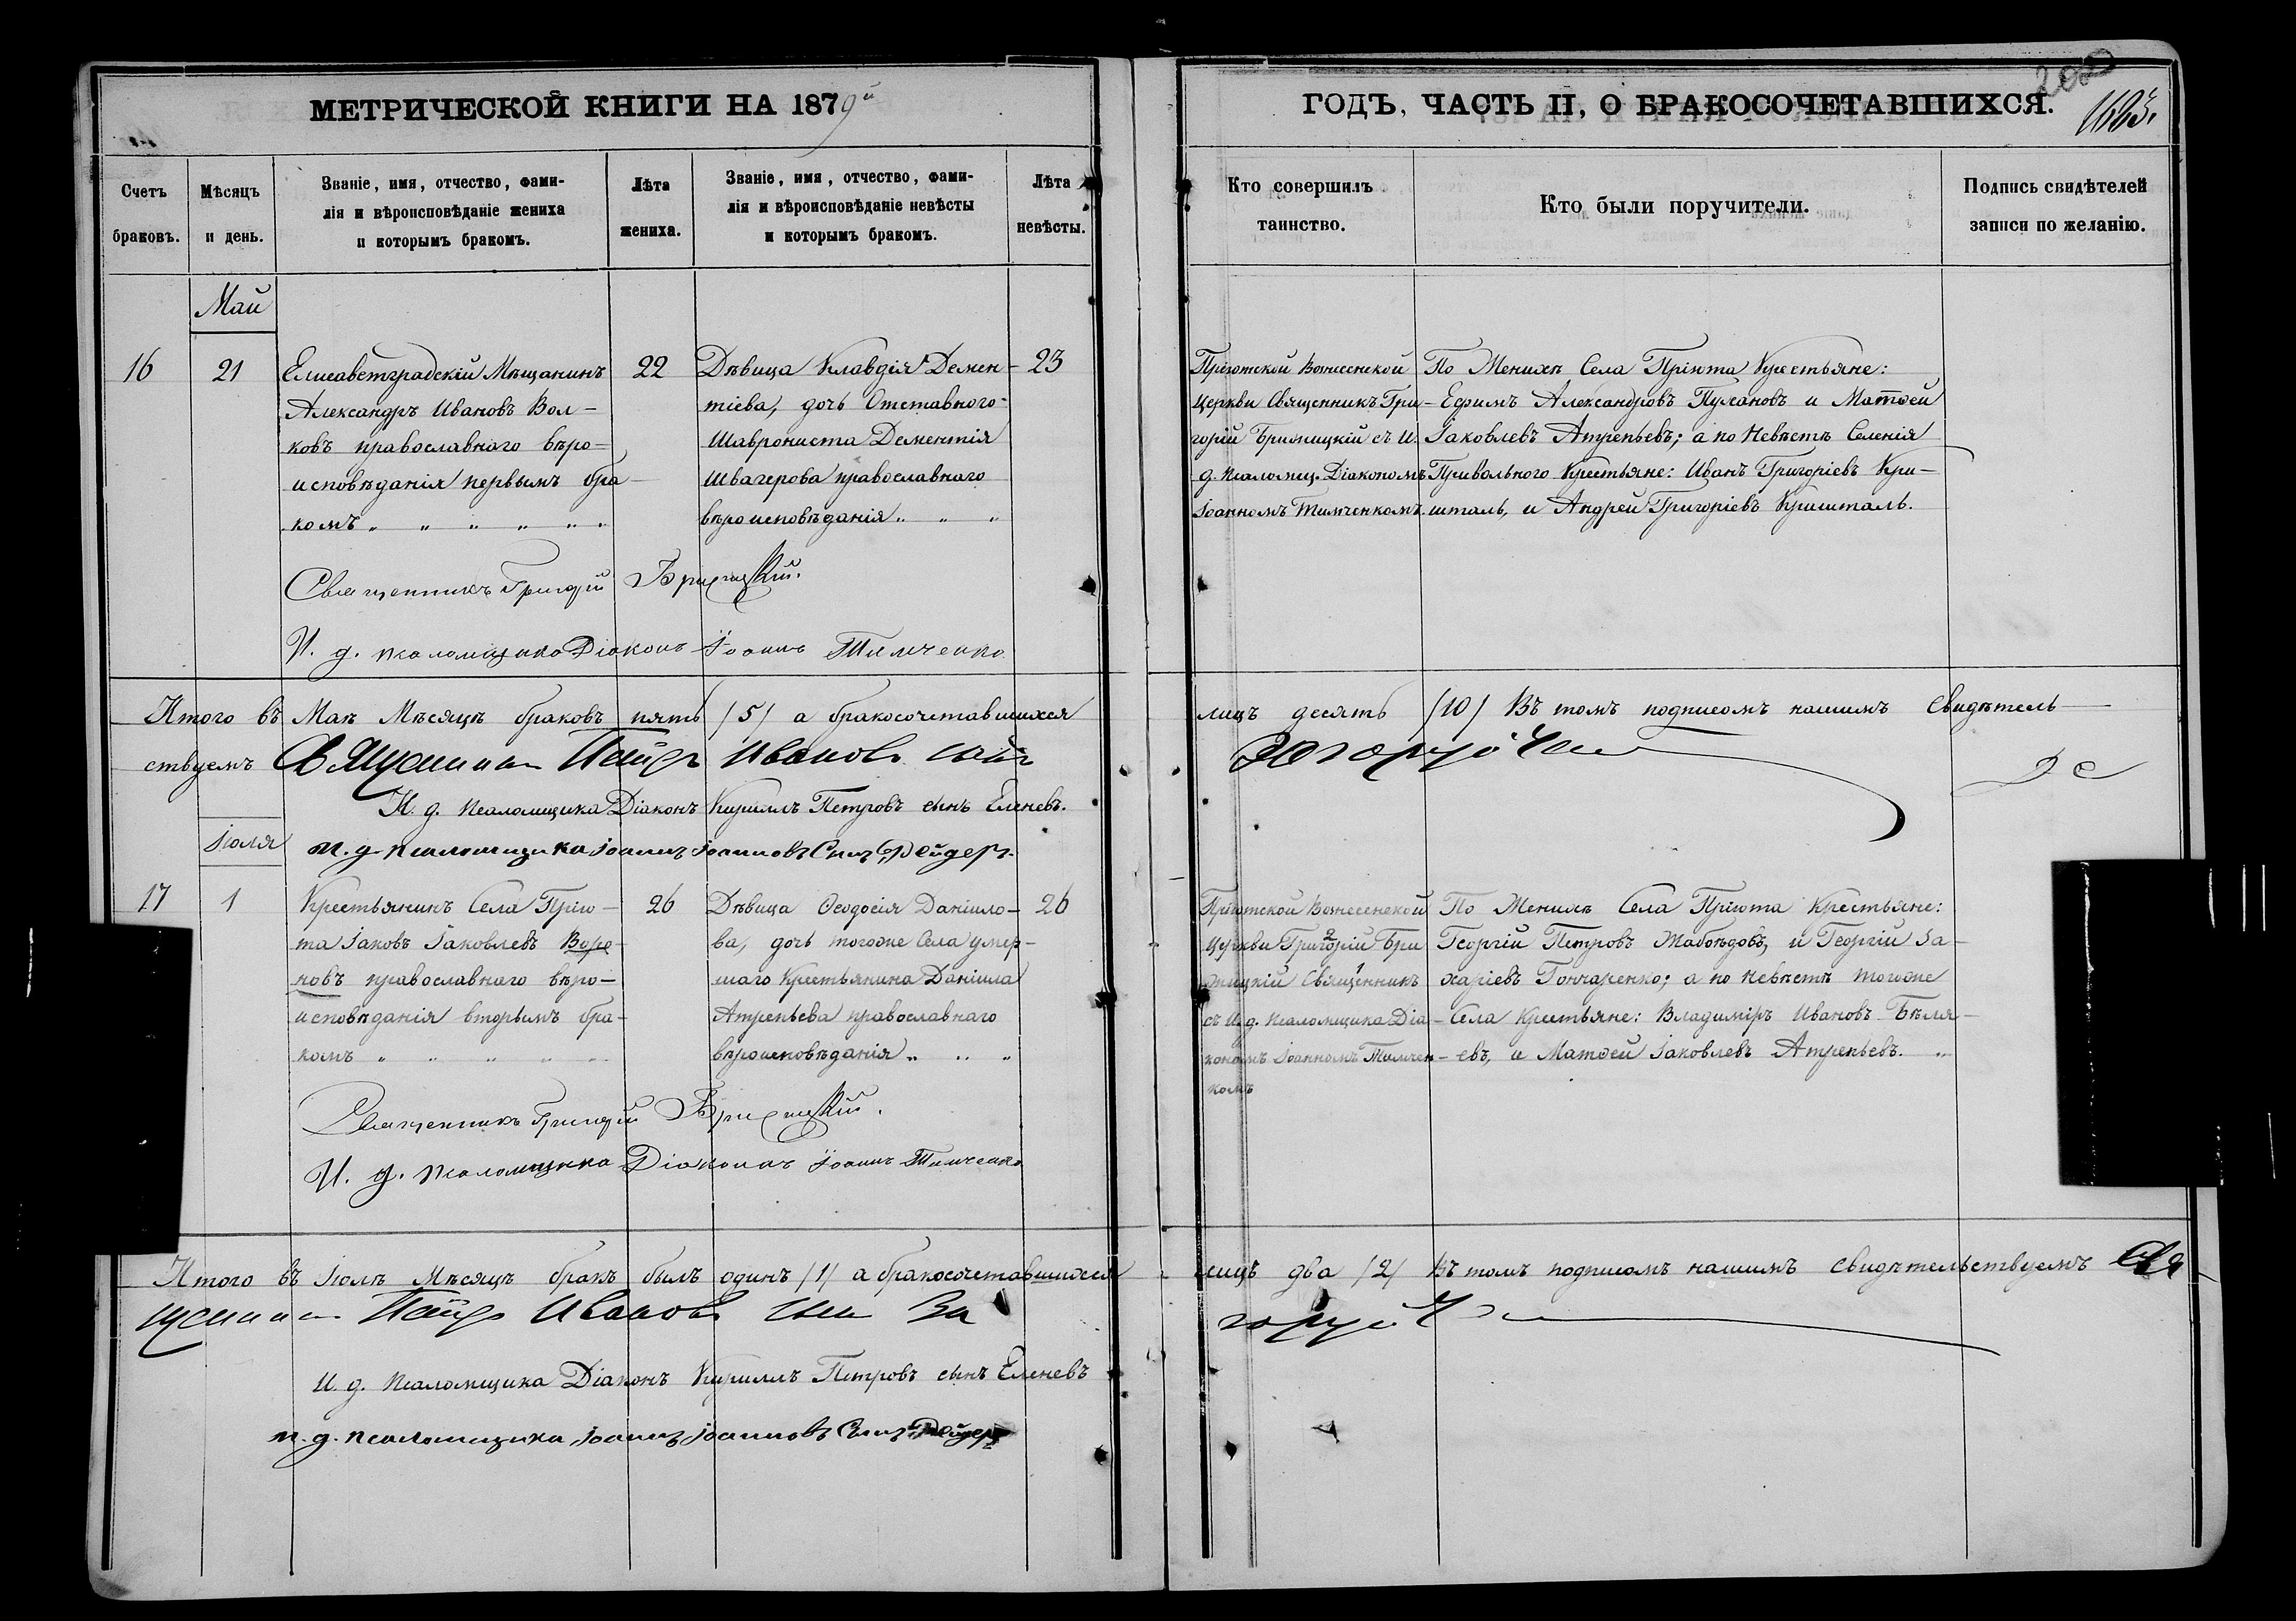 МЕТРИЧЕСКОЙ КНИГИ НА 1879й
ГОДЪ, ЧАСТЬ II, О БРАКОСОЧЕТАВШИХСЯ.
Счетъ браковъ.
Мѣсяцъ и день.
Званіе, имя, отчество, фами-
лія и вѣроисповѣданіе жениха
и которымъ бракомъ.
Лѣта жениха.
Званіе, имя, отчество, фами-
лія и вѣроисповѣданіе невѣсты
и которымъ бракомъ.
Лѣта невѣсты.
Кто совершилъ
таинство.
Кто были поручители.
Подпись свидѣтелей
записи по желанію.
Май
16
21
Елисаветградскій Мѣщанинъ
Александръ Ивановъ Вол-
ковъ православнаго вѣро-
исповѣданія первымъ бра-
комъ
22
Дѣвица Клавдія Демен-
тіева, дочь Отставного
Шаврониста Дементія
Швагерова православнаго
вѣроисповѣданія
23
Пріютской Вознесенской
Церкви Священникъ Гри-
горій с И.
д. Псаломщ. Діакономъ
Іоанномъ Тимченкомъ.
По Женихѣ Села Пріюта Крестьяне:
Ефимъ Александровъ Пугановъ и Матѳей
Іаковлевъ Атрепьевъ; а по Невѣстѣ Селенія
Привольного Крестьяне: Иванъ Григоріевъ Кри-
шталь, и Андрей Григоріевъ Кришталь.
Священникъ Григорій
И. д. псаломщика Діаконъ Іоаннъ Тимченко
Итого въ Маѣ Мѣсяцѣ браковъ пять /5/ а бракосочетавшихся
лицъ десять /10/ Въ томъ подписомъ нашимъ Свидѣтель-
ствуемъ Священникъ Петръ Ивановъ сынъ
И. д. Псаломщика Діаконъ Кириллъ Петровъ сынъ Еленевъ.
и. д. псаломщика Іоаннъ Іоанновъ Сынъ
Іюля
17
1
Крестьянинъ Села Прію-
та Іаковъ Іаковлевъ Воро-
новъ православнаго вѣро-
исповѣданія вторымъ бра-
комъ
26
Дѣвица Ѳеодосія Даніило-
ва, дочь тогоже Села умер-
шаго Крестьянина Даніила
Атрепьева православнаго
вѣроисповѣданія
26
Пріютской Вознесенской
Церкви Григорій
Священникъ
съ И. д. Псаломщика Діа-
кономъ Іоанномъ Тимчен-
комъ
По Женихѣ Села Пріюта Крестьяне:
Георгій Петровъ Жабоѣдовъ, и Георгій За-
харіевъ Гончаренко; а по Невѣстѣ тогоже
Села Крестьяне: Владиміръ Ивановъ Бѣля-
евъ, и Матѳей Іаковлевъ Атрепьевъ.
Священникъ Григорій
И. д. псаломщика Діаконъ Іоаннъ Тимченко
Итого въ Іюлѣ Мѣсяцѣ бракъ былъ одинъ /1/ а бракосочетавшихся
лицъ два /2/ Въ томъ подписомъ нашимъ свидѣтельствуемъ Свя
щенникъ Петръ Ивановъ сынъ
И. д. Псаломщика Діаконъ Кириллъ Петровъ сынъ Еленевъ
и. д. псаломщика Іоаннъ Іоанновъ Сынъ